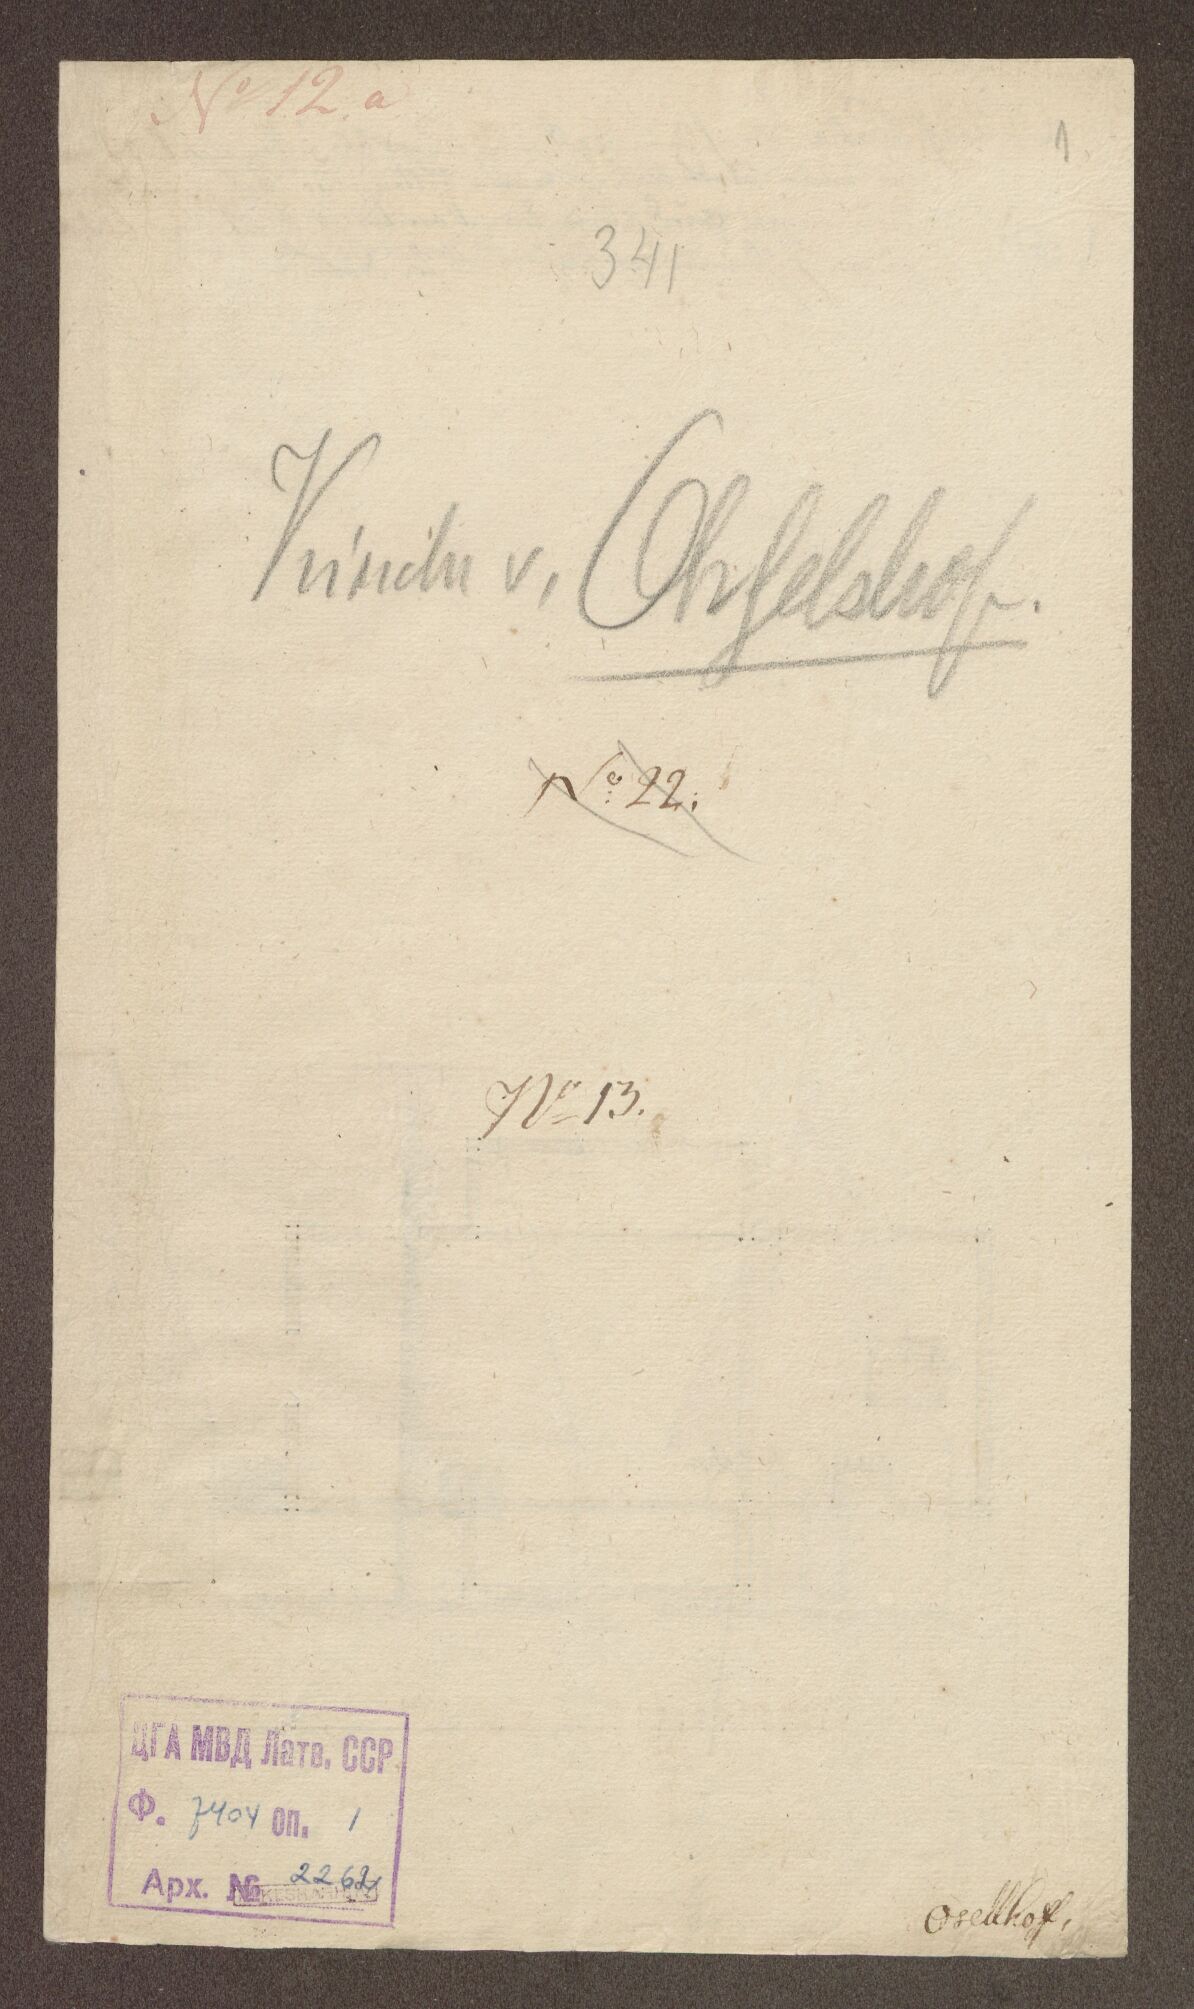 No 12. a
1.
341
v. Ohselshof.
No 22.
No 13.
ЦГА МВД Латв. ССР
Ф. 7404 оп. 1
Арх. № 2262
Osellhof,